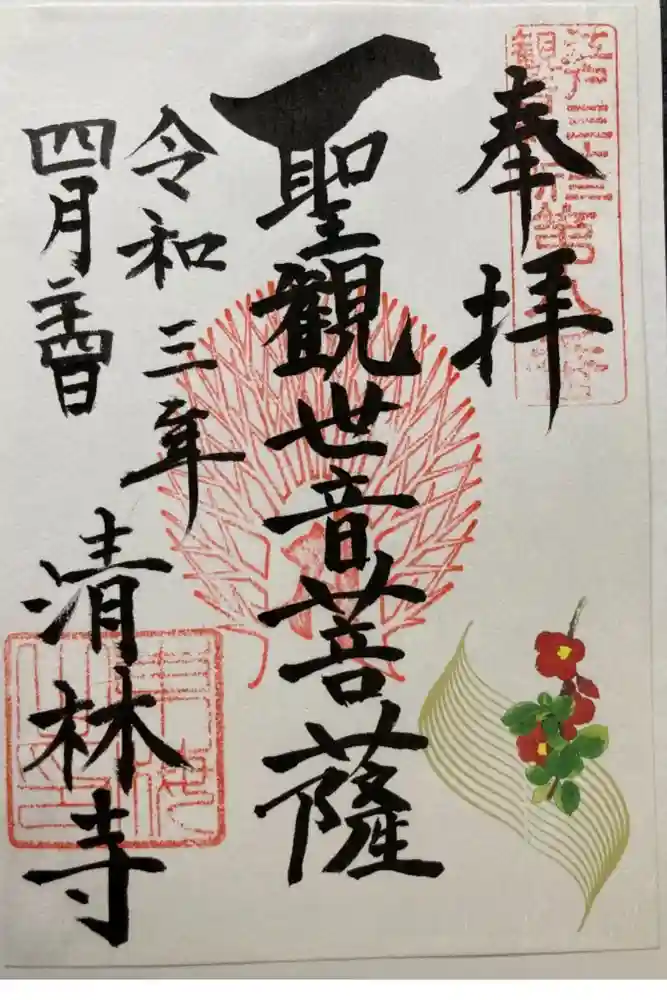 江戸三十三
観音札所
第八番
奉拝
聖観世音菩薩
令和三年
四月二十四日
清林寺